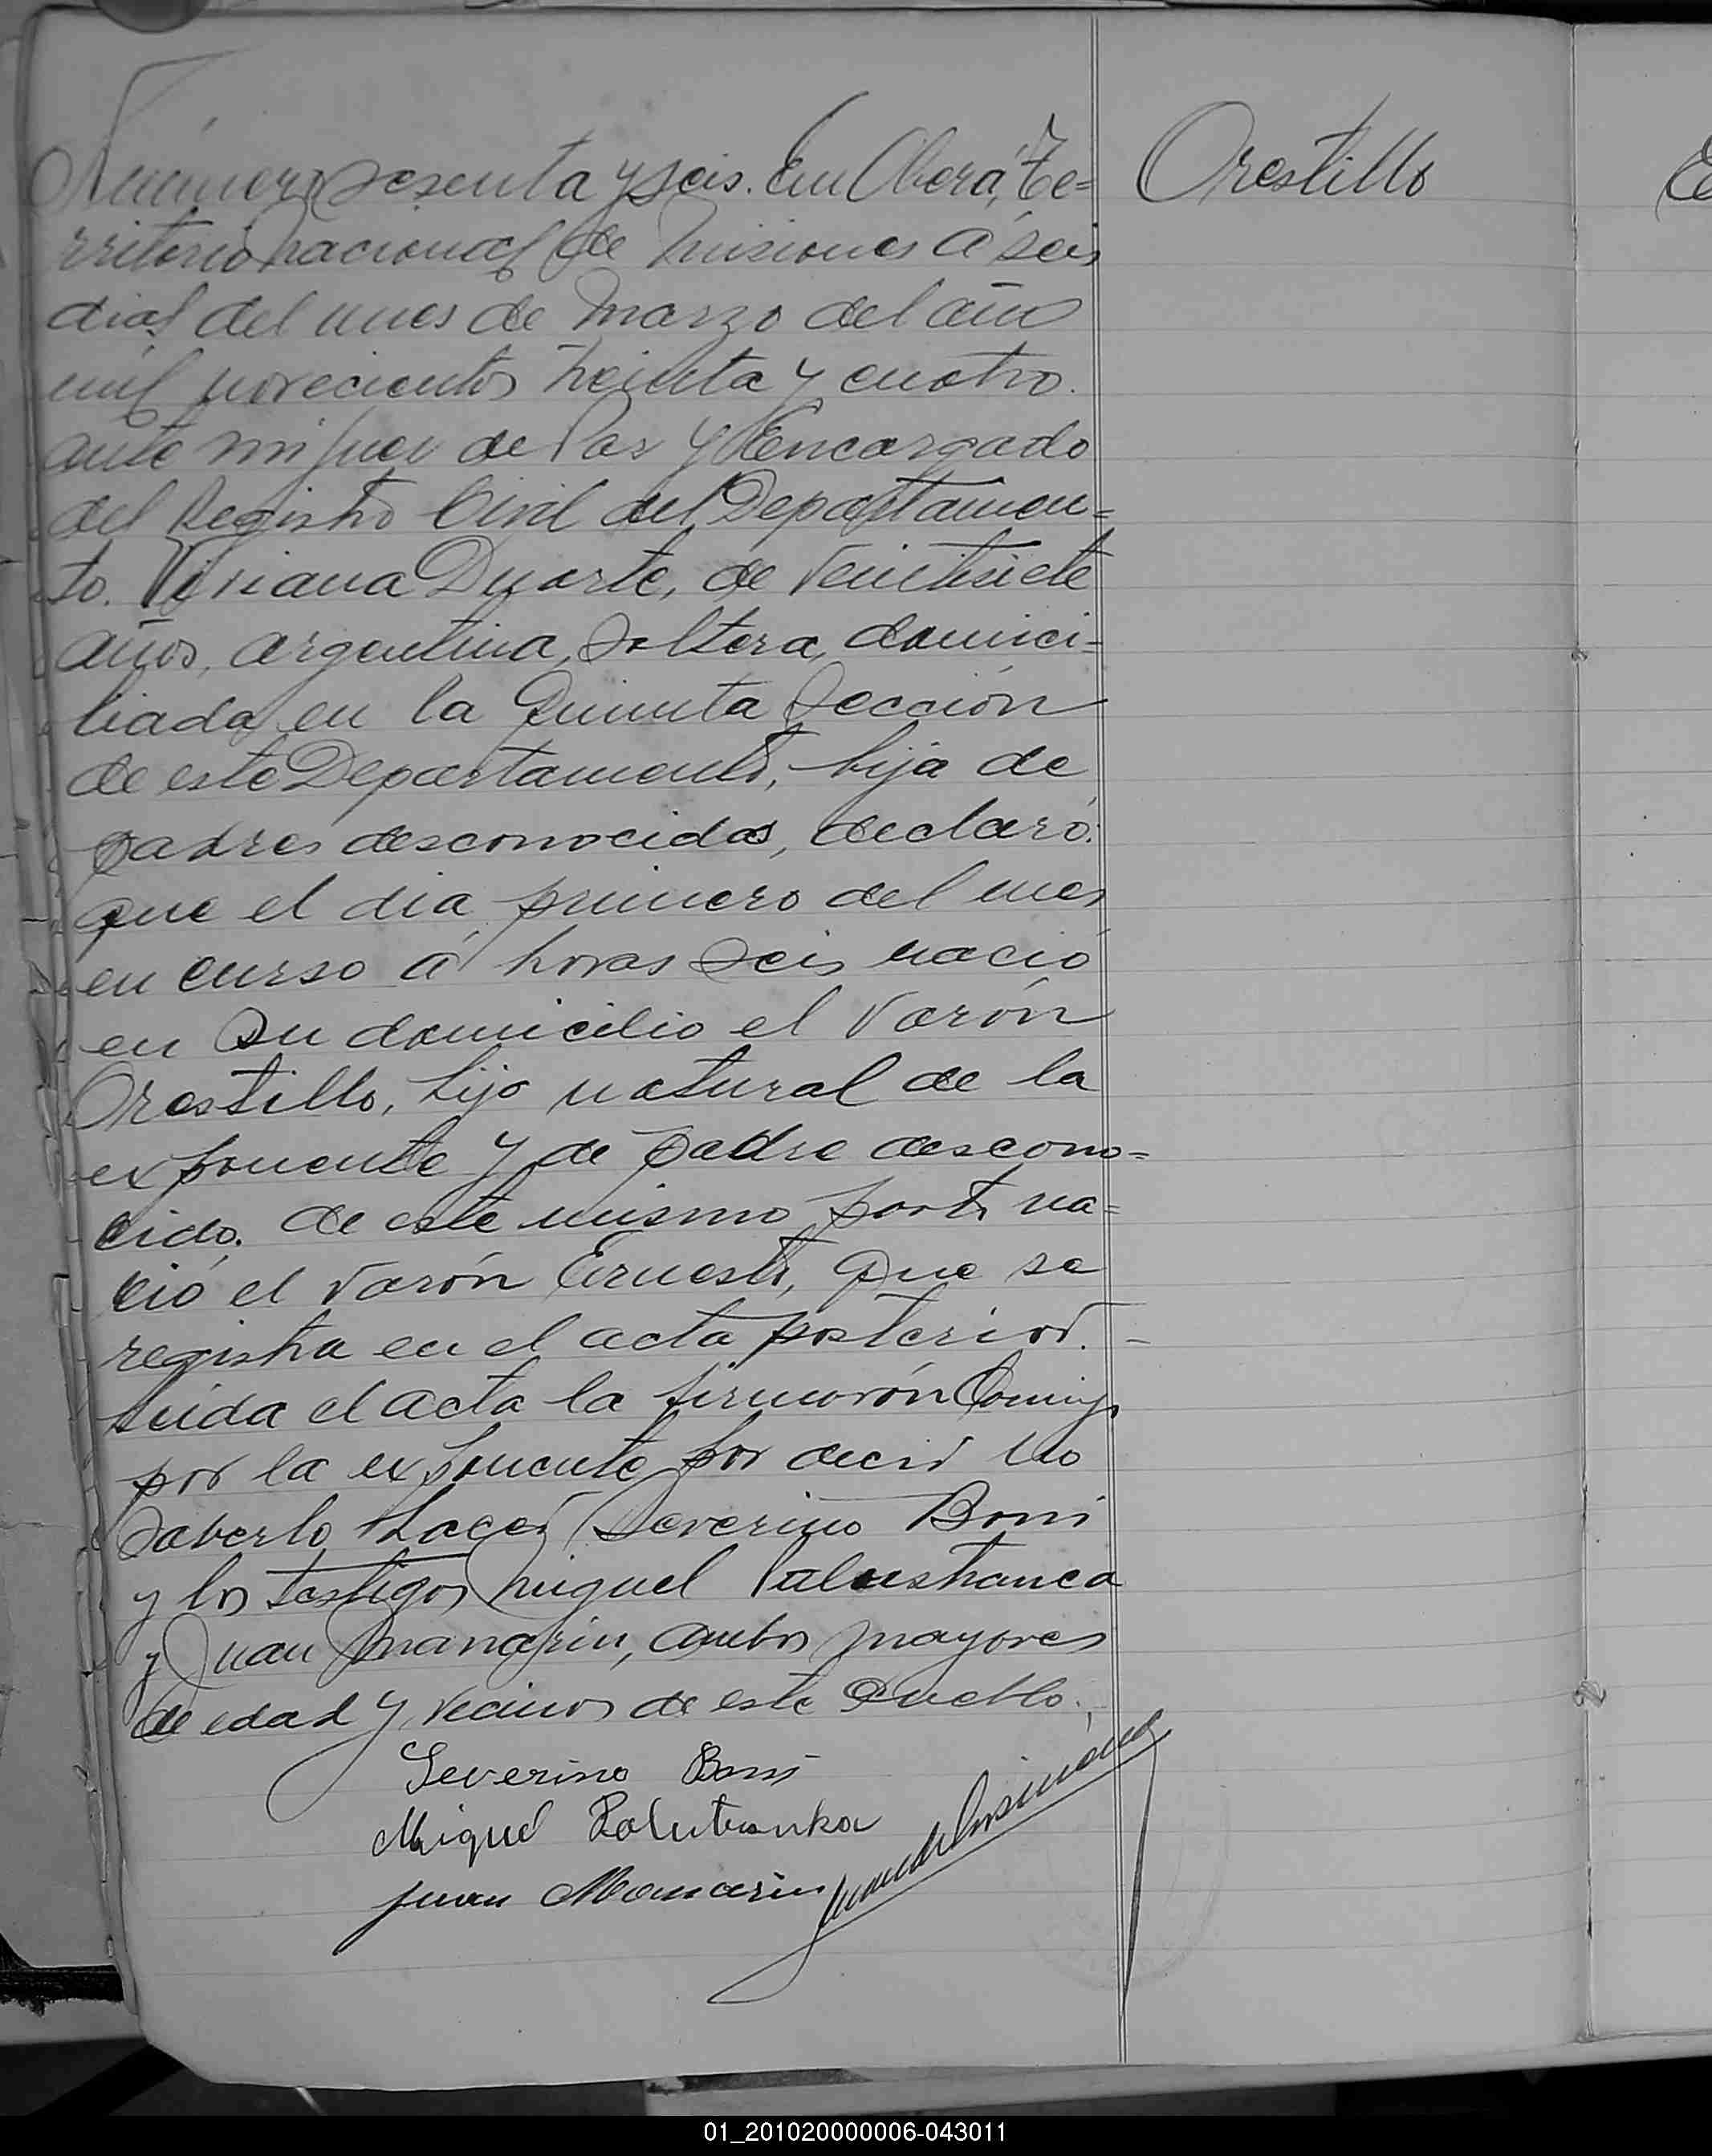 Número sesenta y seis. En Oberá, Te=
rritorio nacional de Misiones a seis
dias del mes de Marzo del año
mil novecientos treinta y cuatro.
ante mi Juez de Paz y Encargado
del Registro Civil del Departamen=
to. Viviana Duarte, de veintisiete
años, argentina, soltera, domici=
liada en la Quinta Sección
de este Departamento, hija de
padres desconocidos, declaró:
que el dia primero del mes
en curso á horas seis nació
en su domicilio el varón
Orestillo, hijo natural de la
exponente y de padre descono=
cido. de este mismo parto na=
ció el varón Ernesto, que se
registra en el acta posterior. -
Leida el acta la firmarón Conmigo
por la exponente por decir no
saberlo hacer Severino Boni
y los testigos Miguel
y Juan Manarin, ambos mayores
de edad y vecinos de este Pueblo.
Severino Boni
Miguel
Juan Manarin
Orestillo
01_201020000006-043011